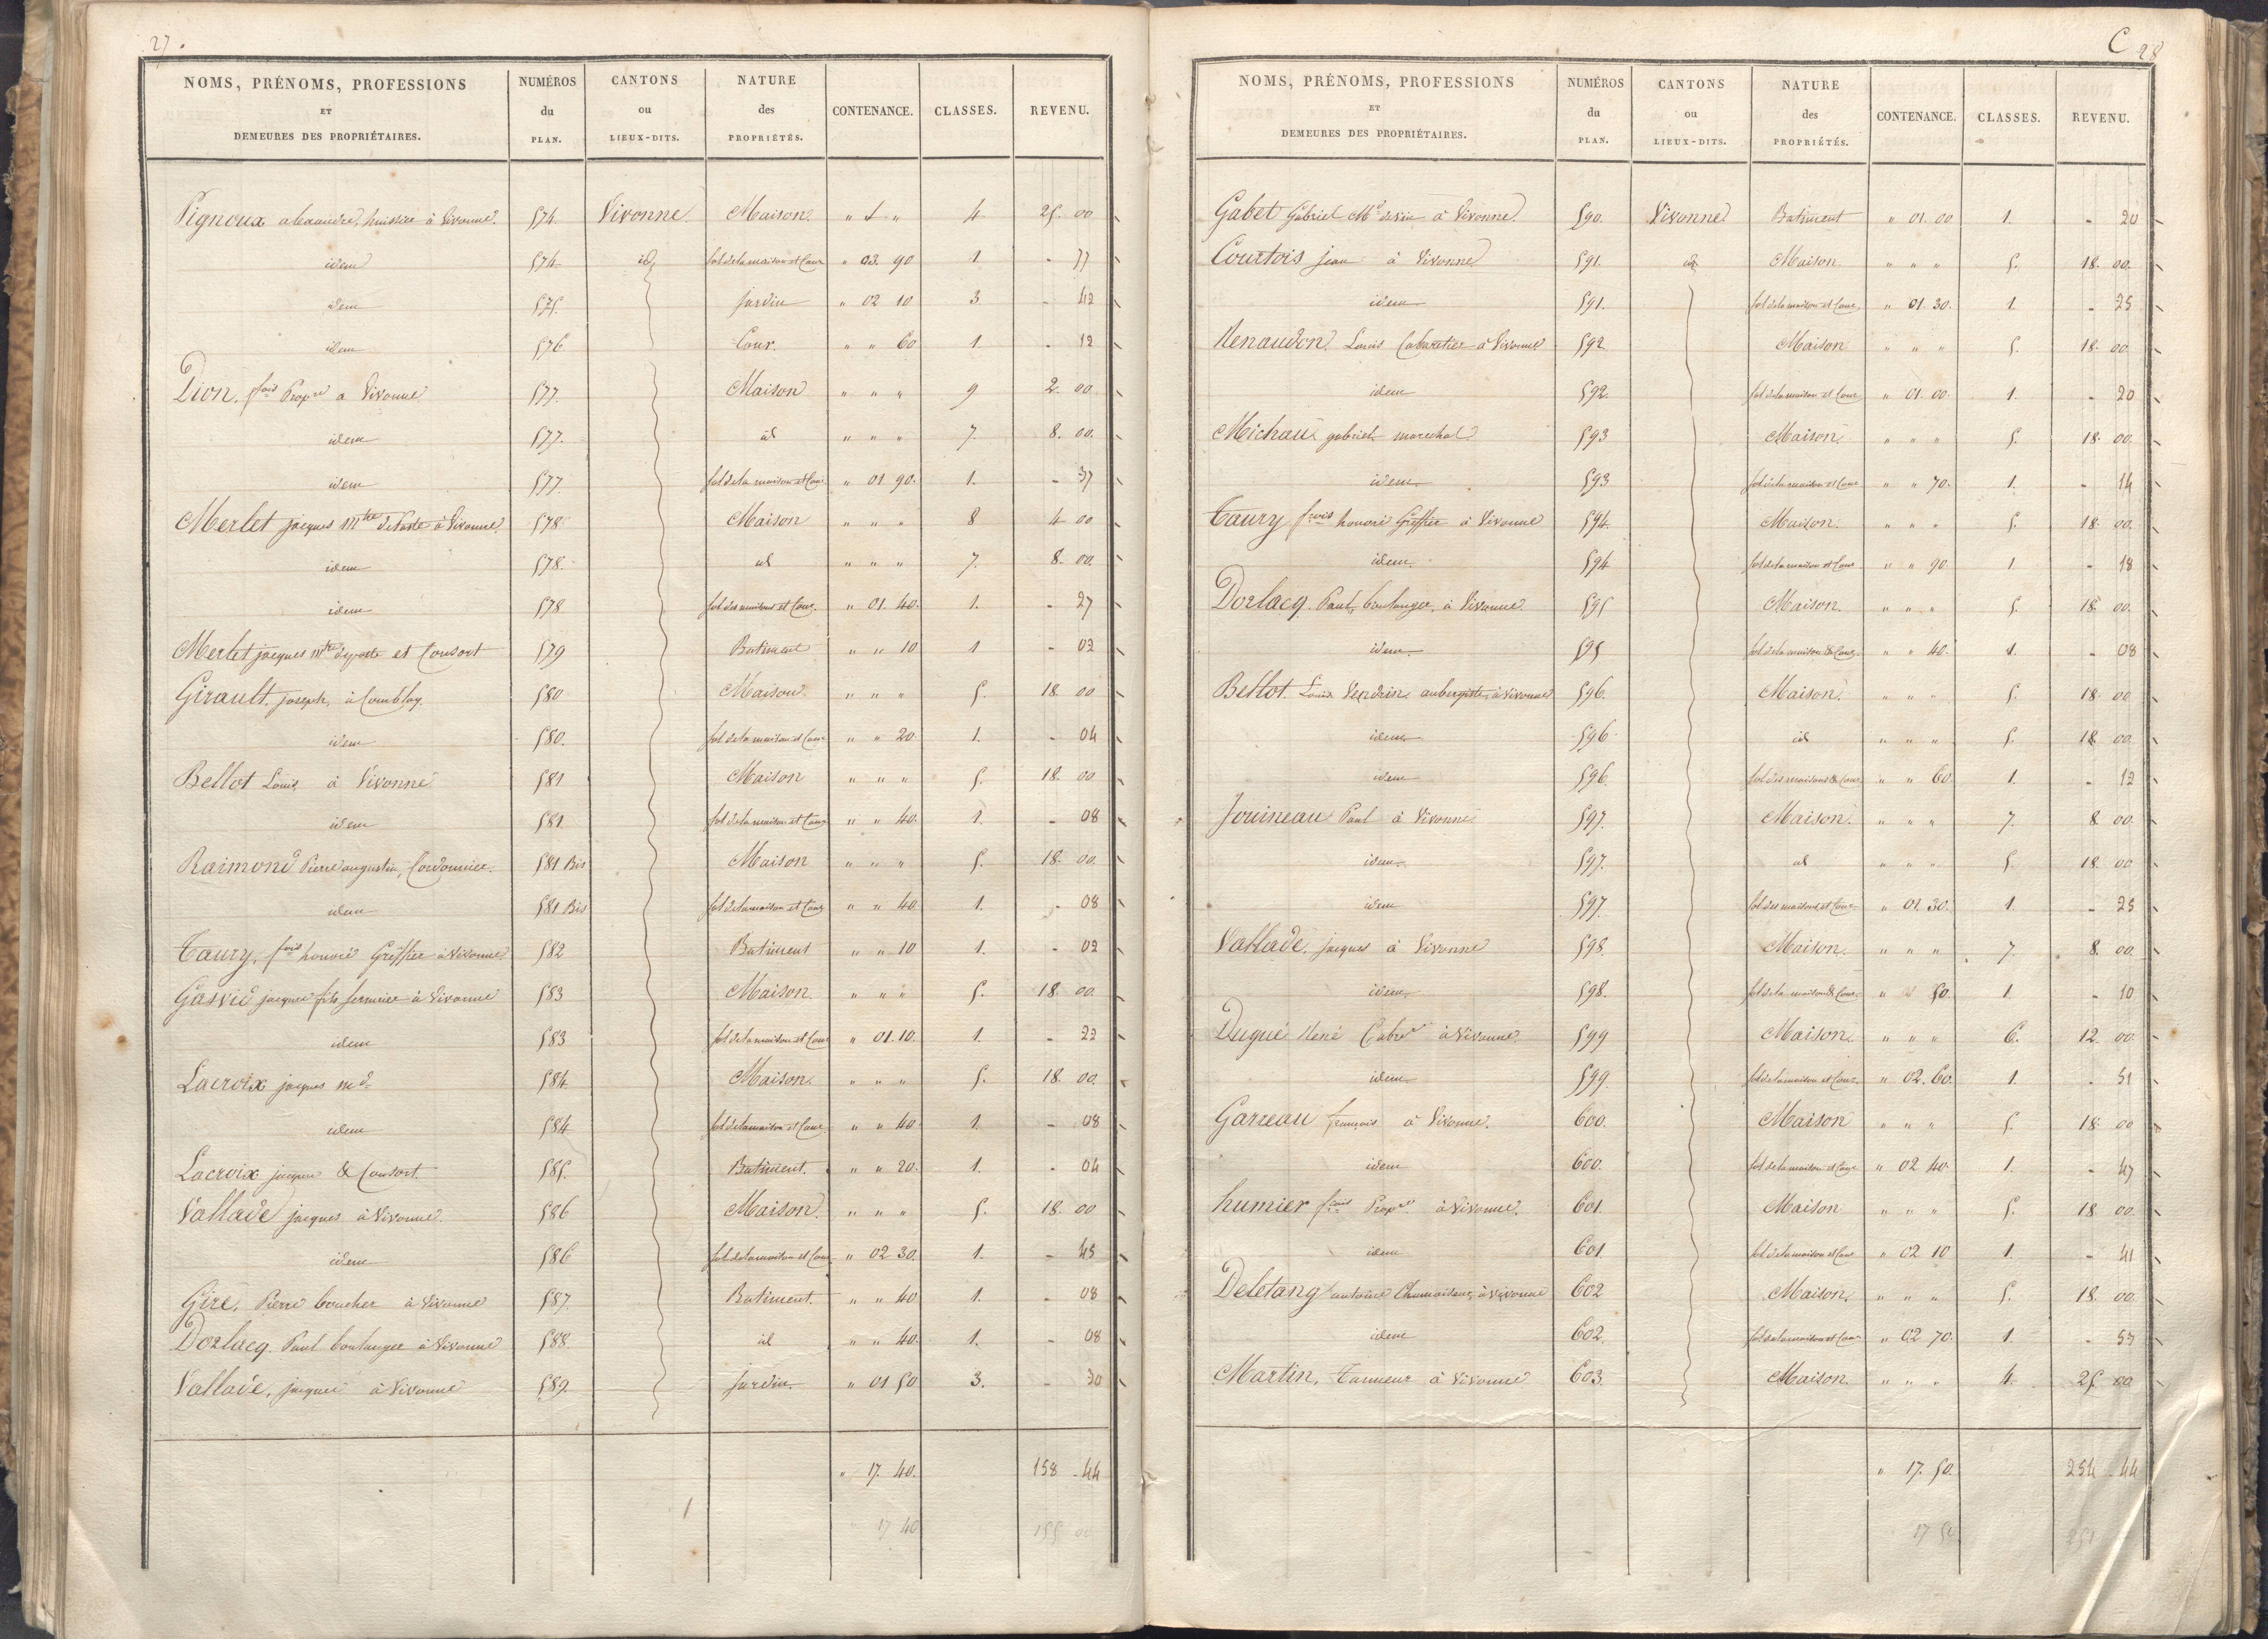 27.
NOMS, PRÉNOMS, PROFESSIONS ET DEMEURES DES PROPRIÉTAIRES. | NUMÉROS du PLAN. | CANTONS ou LIEUX-DITS. | NATURE des PROPRIÉTÉS. | CONTENANCE. | CLASSES. | REVENU.
Pignoux huissier à Vivonne. 574. Vivonne Maison. " " 4 25. 00
idem 574 id sol de la maison et Cour " 03. 90 1. - 77
idem 575. Jardin " 02 10 3. - 42
idem 576 Cour. " " 60 1. - 12
Dion, fois Propre a Vivonne 577. Maison " " " 9 2. 00
idem 577. id " " " 7. 8. 00.
idem 577. sol de la maison et Cour " 01 90. 1. - 37
Merlet jacques mtre de Poste à Vivonne. 578 Maison " " " 8 4 00
idem 578. id " " " 7. 8. 00.
idem 578 sol des maisons et Cour. " 01. 40. 1. - 27
Merlet jacques mtre de poste et Consort 579 Batiment " " 10 1 - 02
Girault joseph, à Comblay. 580 Maison. " " " 5. 18 00
idem 580. sol de la maison et Cour " " 20 1. - 04
Bellot Louis à Vivonne 581 Maison " " " 5. 18. 00
idem 581 sol de la maison et Cour " " 40. 1. - 08
Raimond Pierre augustin, Cordonnier. 581 Bis Maison " " " 5. 18. 00.
idem 581 Bis sol de la maison et Cour " " 40 1. - 08
Taury, fois honoré Greffier à Vivonne 582 Batiment " " 10 1. - 02
Gassié jacques fils serrurier à Vivonne 583 Maison. " " " 5. 18. 00.
idem 583 sol de la maison et Cour " 01. 10. 1. - 22
Lacroix jacques md 584 Maison. " " " 5. 18. 00.
idem 584 sol de la maison et Cour " " 40 1. - 08
Lacroix jacques & Consort. 585. Batiment. " " 20. 1. - 04
Vallade jacques à Vivonne. 586 Maison. " " " 5. 18 00
idem 586 sol de la maison et Cour " 02 30. 1. - 45
Giré, Pierre boucher à Vivonne 587. Batiment. " " 40 1. - 08
Dorlacq. Paul boulanger à Vivonne 588. id " " 40. 1. - 08
Vallade, jacques à Vivonne 589. Jardin. " 01 50 3. - 30
" 17. 40. 158 - 44
17 40 155 00
C 28
NOMS, PRÉNOMS, PROFESSIONS ET DEMEURES DES PROPRIÉTAIRES. | NUMÉROS du PLAN. | CANTONS ou LIEUX-DITS. | NATURE des PROPRIÉTÉS. | CONTENANCE. | CLASSES. | REVENU.
Gabet Gabriel Md de vin à Vivonne. 590. Vivonne Batiment " 01. 00 1. - 20
Courtois jean à Vivonne 591. id Maison. " " " 5. 18. 00.
idem 591. sol de la maison et Cour " 01. 30. 1. - 25
Renaudon. Louis Cabaretier à Vivonne 592 Maison " " " 5. 18. 00.
idem 592. sol de la maison et Cour " 01. 00. 1. - 20
Michau gabriel marechal 593 Maison. " " " 5. 18. 00.
idem. 593 sol de la maison et Cour " " 70. 1. - 14
Taury frois honoré Greffier à Vivonne 594. Maison. " " " 5. 18. 00.
idem 594 sol de la maison et Cour " " 90. 1 - 18
Dorlacq. Paul, boulanger, à Vivonne. 595 Maison. " " " 5. 18. 00.
idem 595 sol de la maison & Cour. " " 40. 1. - 08
Bellot Louis aubergiste, à Vivonne 596. Maison. " " " 5. 18. 00
idem 596 id " " " 5. 18 00.
idem 596 sol des maisons & Cour " " 60. 1. - 12
Jouineau Paul à Vivonne. 597. Maison. " " " 7. 8 00.
idem. 597. id " " " 5. 18. 00
idem 597. sol des maisons et Cour " 01. 30. 1. - 25
Vallade, jacques à Vivonne 598. Maison. " " " 7 8. 00.
idem 598. sol de la maison & Cour " " 50. 1. - 10
Dugué René à Vivonne. 599 Maison. " " " 6. 12. 00.
idem 599. sol de la maison et Cour. " 02. 60. 1. - 51
Garreau françois à Vivonne. 600. Maison " " " 5. 18. 00
idem 600. sol de la maison et Cour " 02 40. 1. - 47
humier fcois Propre à Vivonne. 601. Maison " " " 5. 18 00.
idem 601 sol de la maison et Cour " 02 10 1. - 41
Deletang antoine Chamoiseur, à Vivonne 602 Maison. " " " 5. 18. 00.
idem 602. sol de la maison et Cour " 02 70. 1. - 53
Martin, Tanneur à Vivonne 603. Maison. " " " 4. 25. 00
" 17. 50. 254 - 44
17 50 251